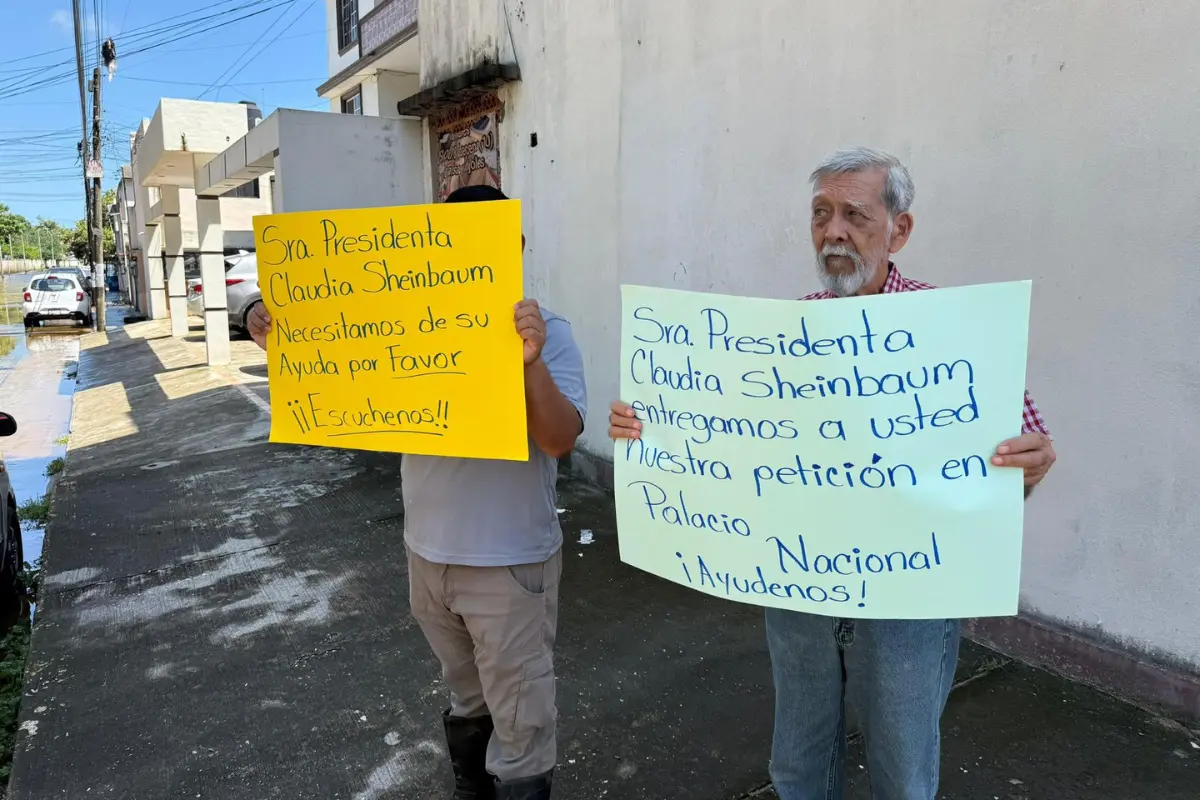 Sra. Presidenta
Claudia Sheinbaum
Necesitamos de su
Ayuda por Favor
¡¡Escuchenos!!
Sra. Presidenta
Claudia Sheinbaum
entregamos a usted
nuestra petición en
Palacio Nacional
¡Ayudenos!